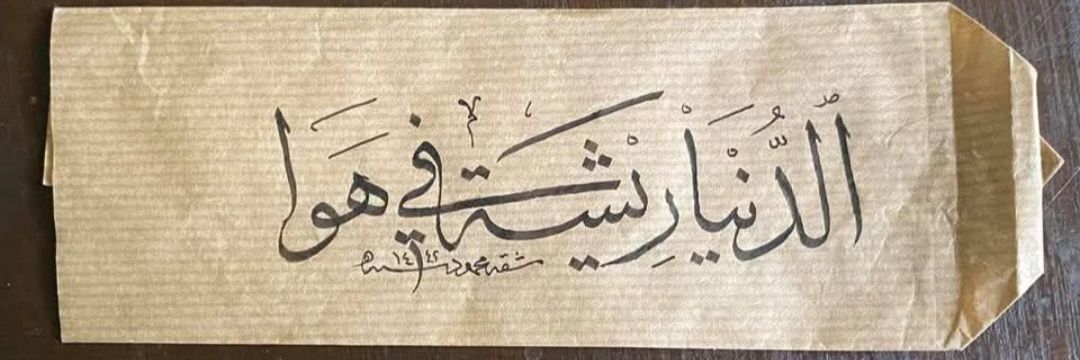 ٱلدُّنْيَاْ رِيْشَة فِي هَوَا
مشقه محمود سنة ١٤٤٢